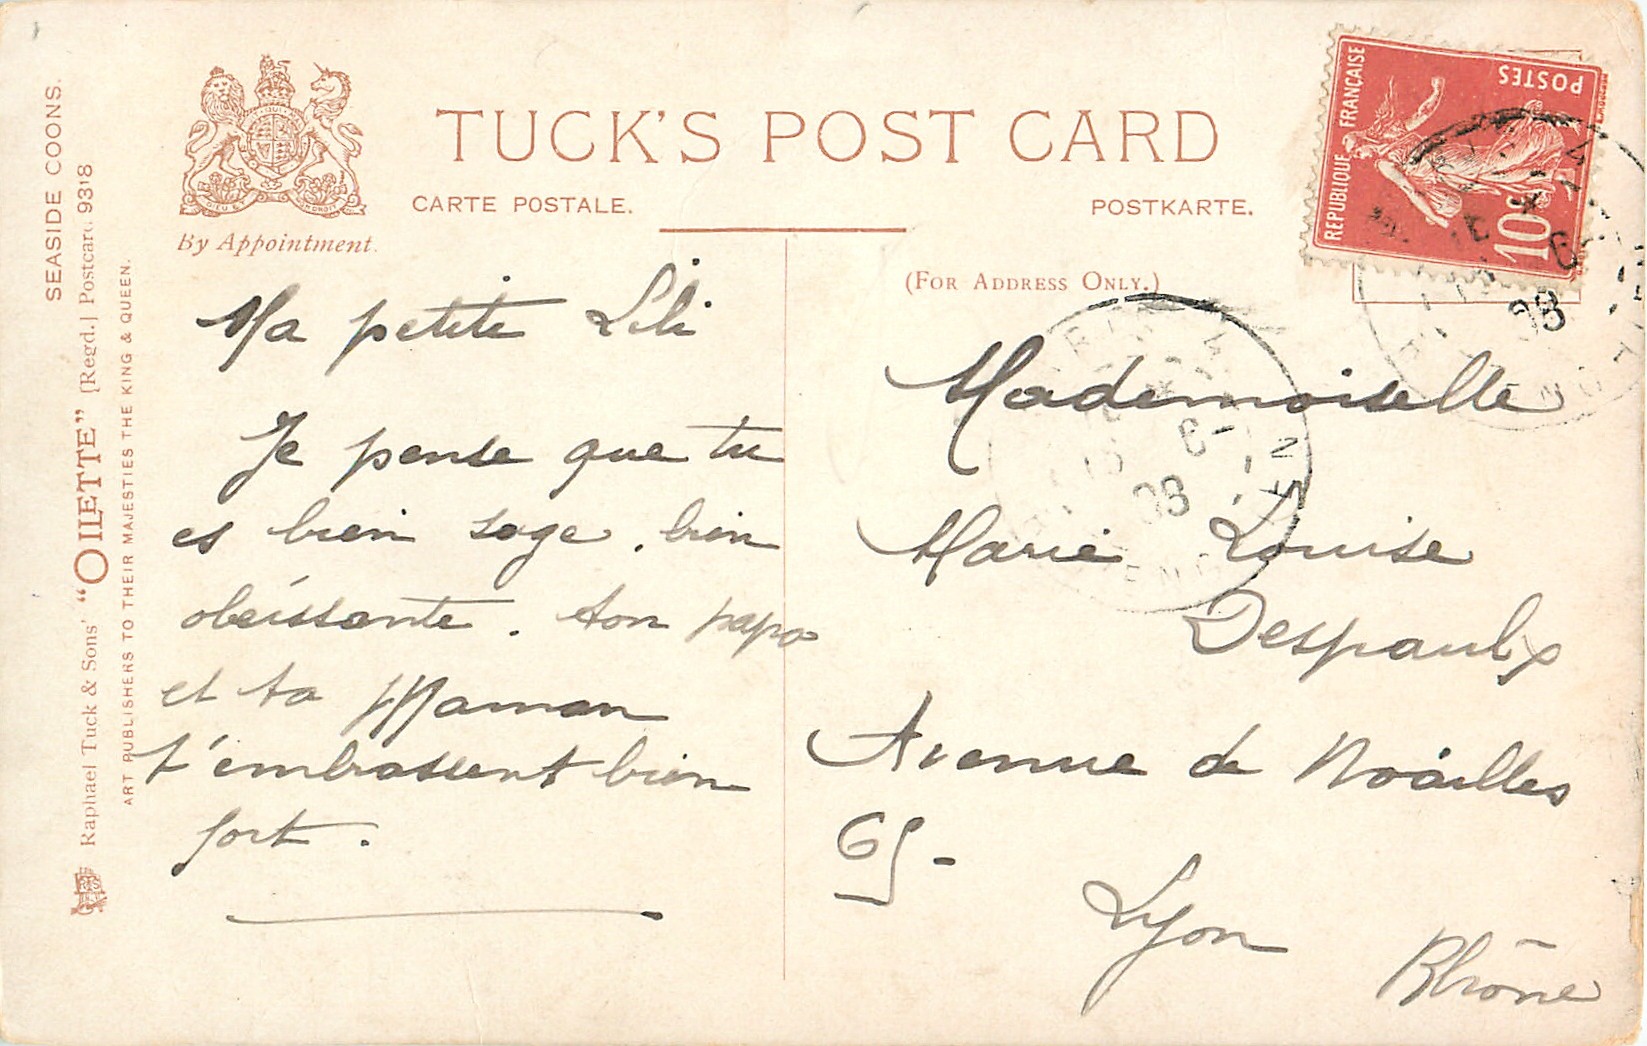 SEASIDE COONS.
Raphael Tuck & Sons' "OILETTE" [Regd.] Postcard 9318
ART PUBLISHERS TO THEIR MAJESTIES THE KING & QUEEN.
By Appointment.
TUCK'S POST CARD
CARTE POSTALE.
POSTKARTE.
(FOR ADDRESS ONLY.)
REPUBLIQUE FRANÇAISE
POSTES
10c
08
6-
08
Ma petite Lili
Je pense que tu
es bien sage, bien
obeissante. ton papa
et ta Maman
t'embrassent bien
fort.
Mademoiselle
Marie Louise
Despaulx
Avenue de Noailles
65-
Lyon
Rhône